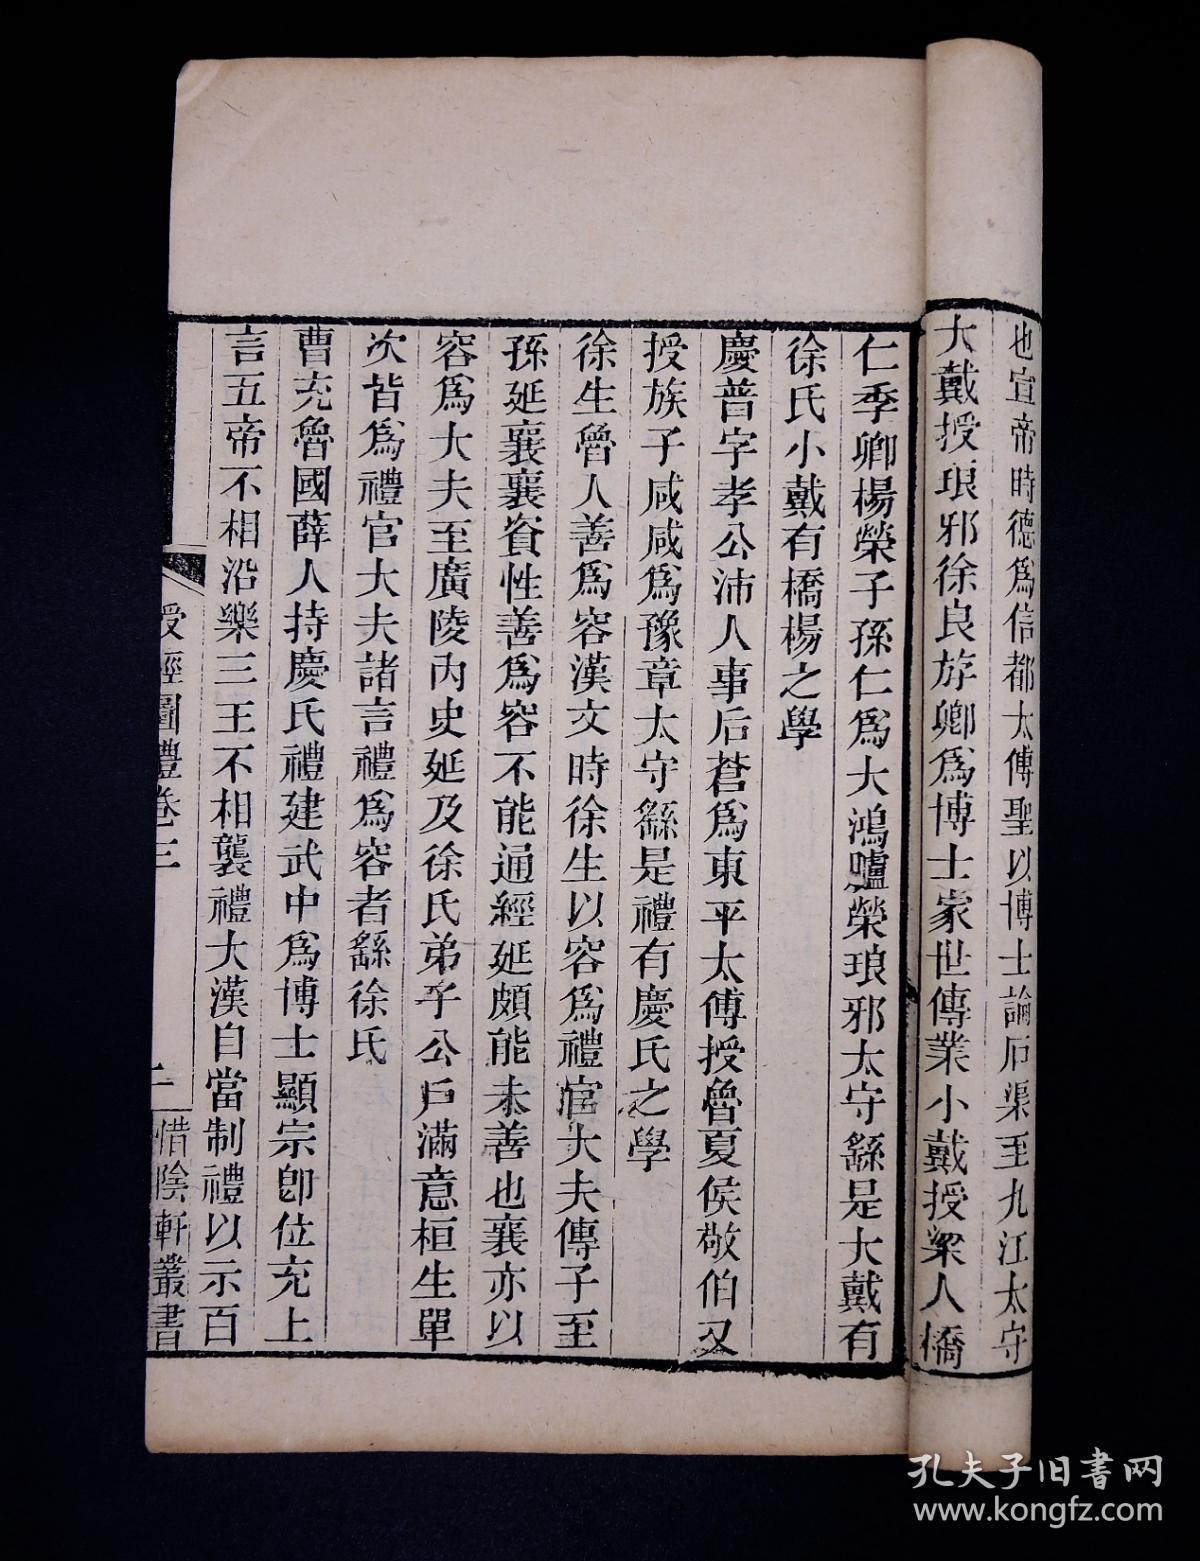 也宣帝時德爲信都太傅聖以博士論石渠至九江太守
大戴授琅邪徐良斿卿爲博士家世傳業小戴授梁人橋
仁季卿楊榮子孫仁爲大鴻臚榮琅邪太守繇是大戴有
徐氏小戴有橋楊之學
慶普字孝公沛人事后蒼爲東平太傅授魯夏侯敬伯又
授族子咸咸爲豫章太守繇是禮有慶氏之學
徐生魯人善爲容漢文時徐生以容爲禮官大夫傳子至
孫延襄襄資性善爲容不能通經延頗能未善也襄亦以
容爲大夫至廣陵內史延及徐氏弟子公戶滿意桓生單
次皆爲禮官大夫諸言禮爲容者繇徐氏
曹充魯國薛人持慶氏禮建武中爲博士顯宗卽位充上
言五帝不相沿樂三王不相襲禮大漢自當制禮以示百
授經圖禮卷三
二
惜陰軒叢書
孔夫子旧书网
www.kongfz.com